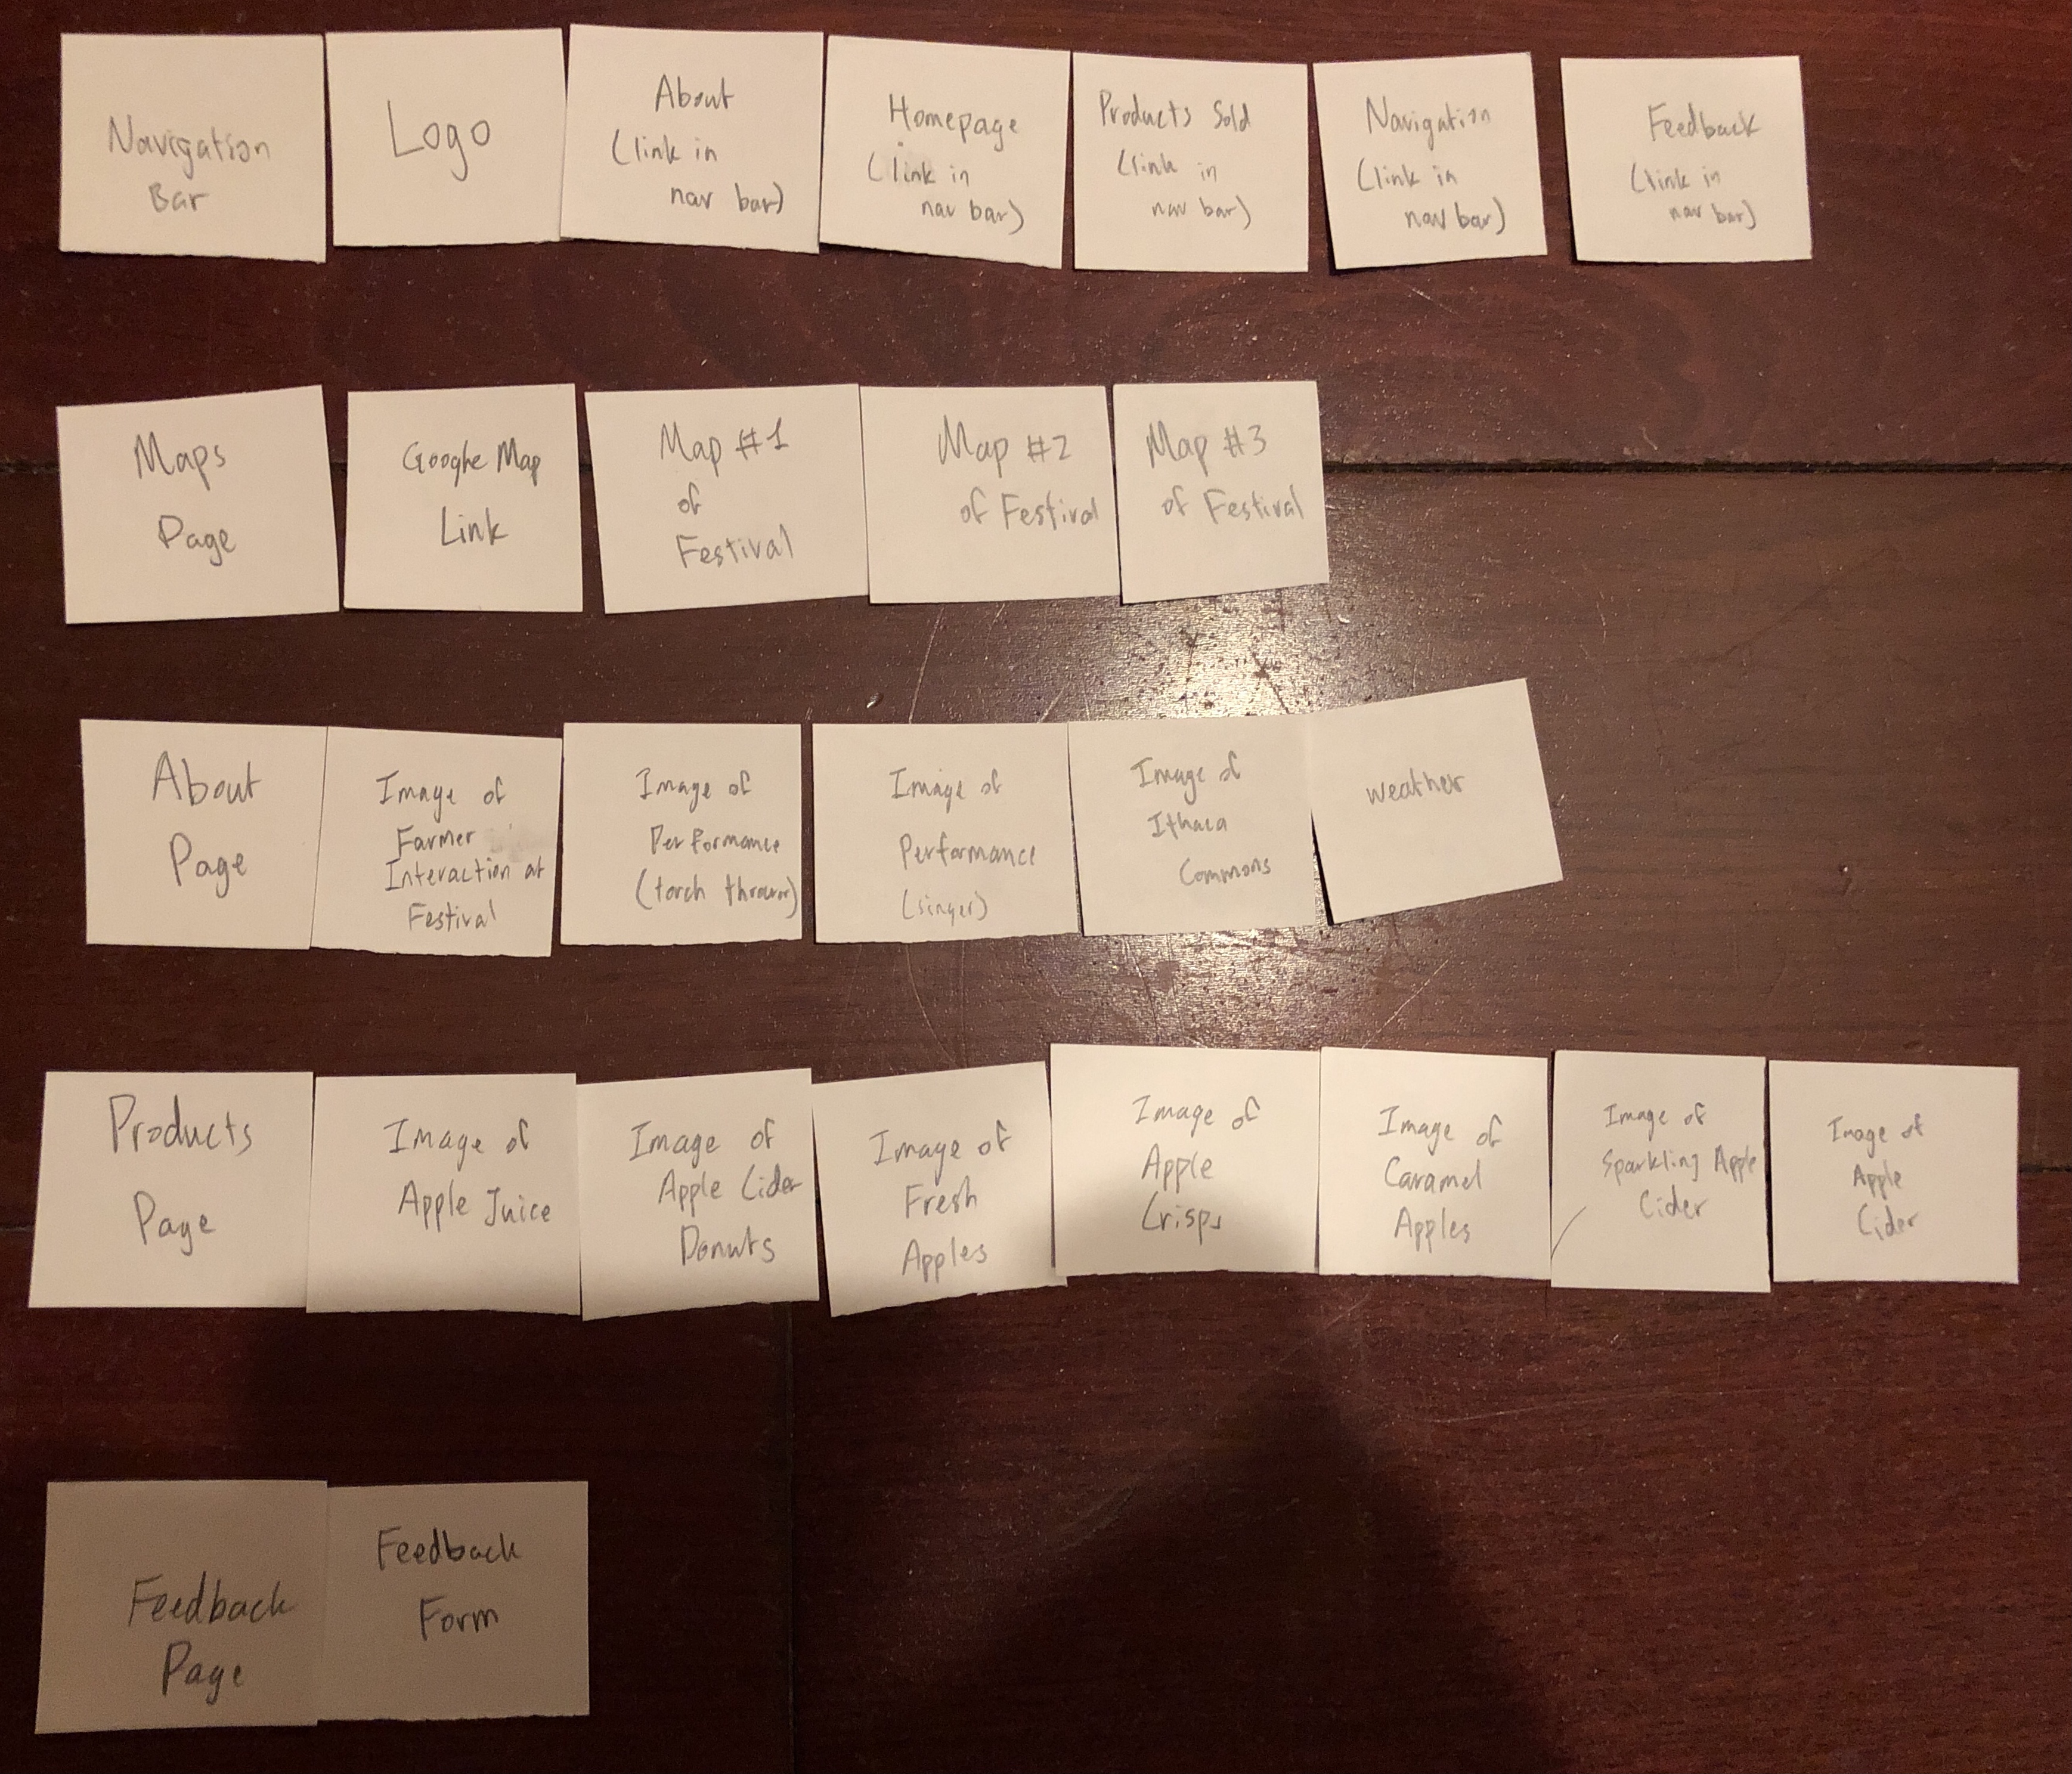 Navigation
Bar
Logo
About
(link in
nav bar)
Homepage
(link in
nav bar)
Products Sold
(link in
nav bar)
Navigation
(link in
nav bar)
Feedback
(link in
nav bar)
Maps
Page
Google Map
Link
Map #1
of
Festival
Map #2
of Festival
Map #3
of Festival
About
Page
Image of
Farmer
Interaction at
Festival
Image of
Performance
(torch thrower)
Image of
Performance
(singer)
Image of
Ithaca
Commons
weather
Products
Page
Image of
Apple Juice
Image of
Apple Cider
Donuts
Image of
Fresh
Apples
Image of
Apple
Crisps
Image of
Caramel
Apples
Image of
Sparkling Apple
Cider
Image of
Apple
Cider
Feedback
Page
Feedback
Form